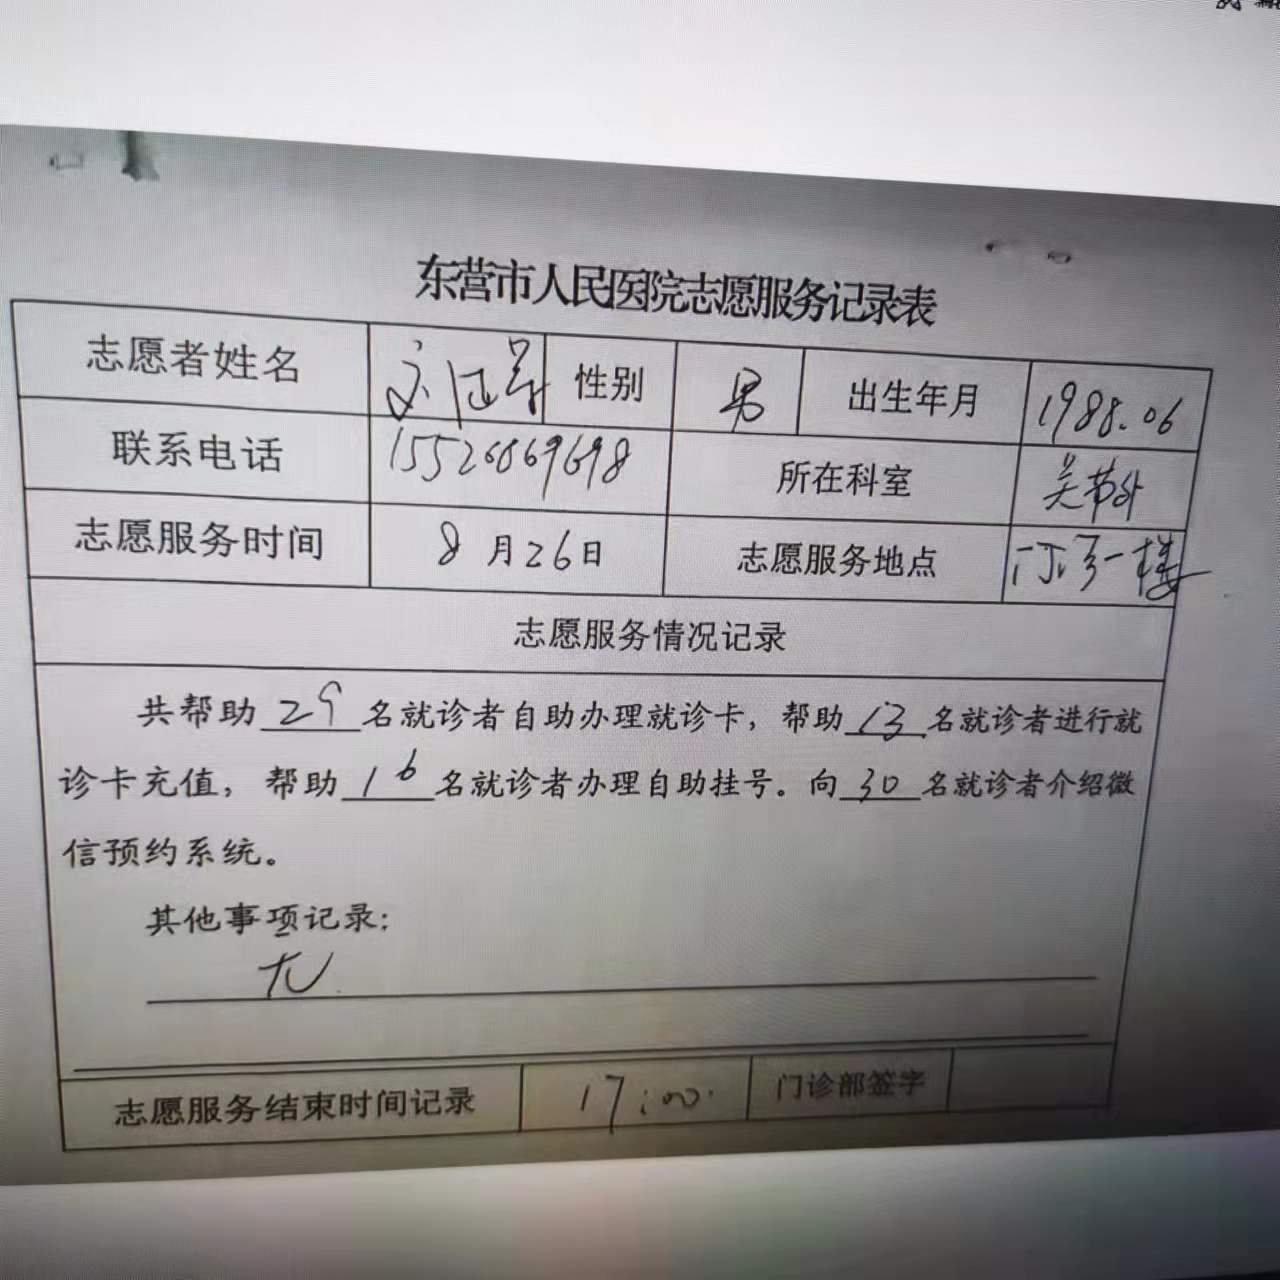 东营市人民医院志愿服务记录表
志愿者姓名 性别 男 出生年月 1988.06
联系电话 15526869698 所在科室 关节外
志愿服务时间 8月26日 志愿服务地点 门诊一楼
志愿服务情况记录
共帮助29名就诊者自助办理就诊卡，帮助13名就诊者进行就
诊卡充值，帮助16名就诊者办理自助挂号。向30名就诊者介绍微
信预约系统。
其他事项记录：
无
志愿服务结束时间记录 17:00. 门诊部签字